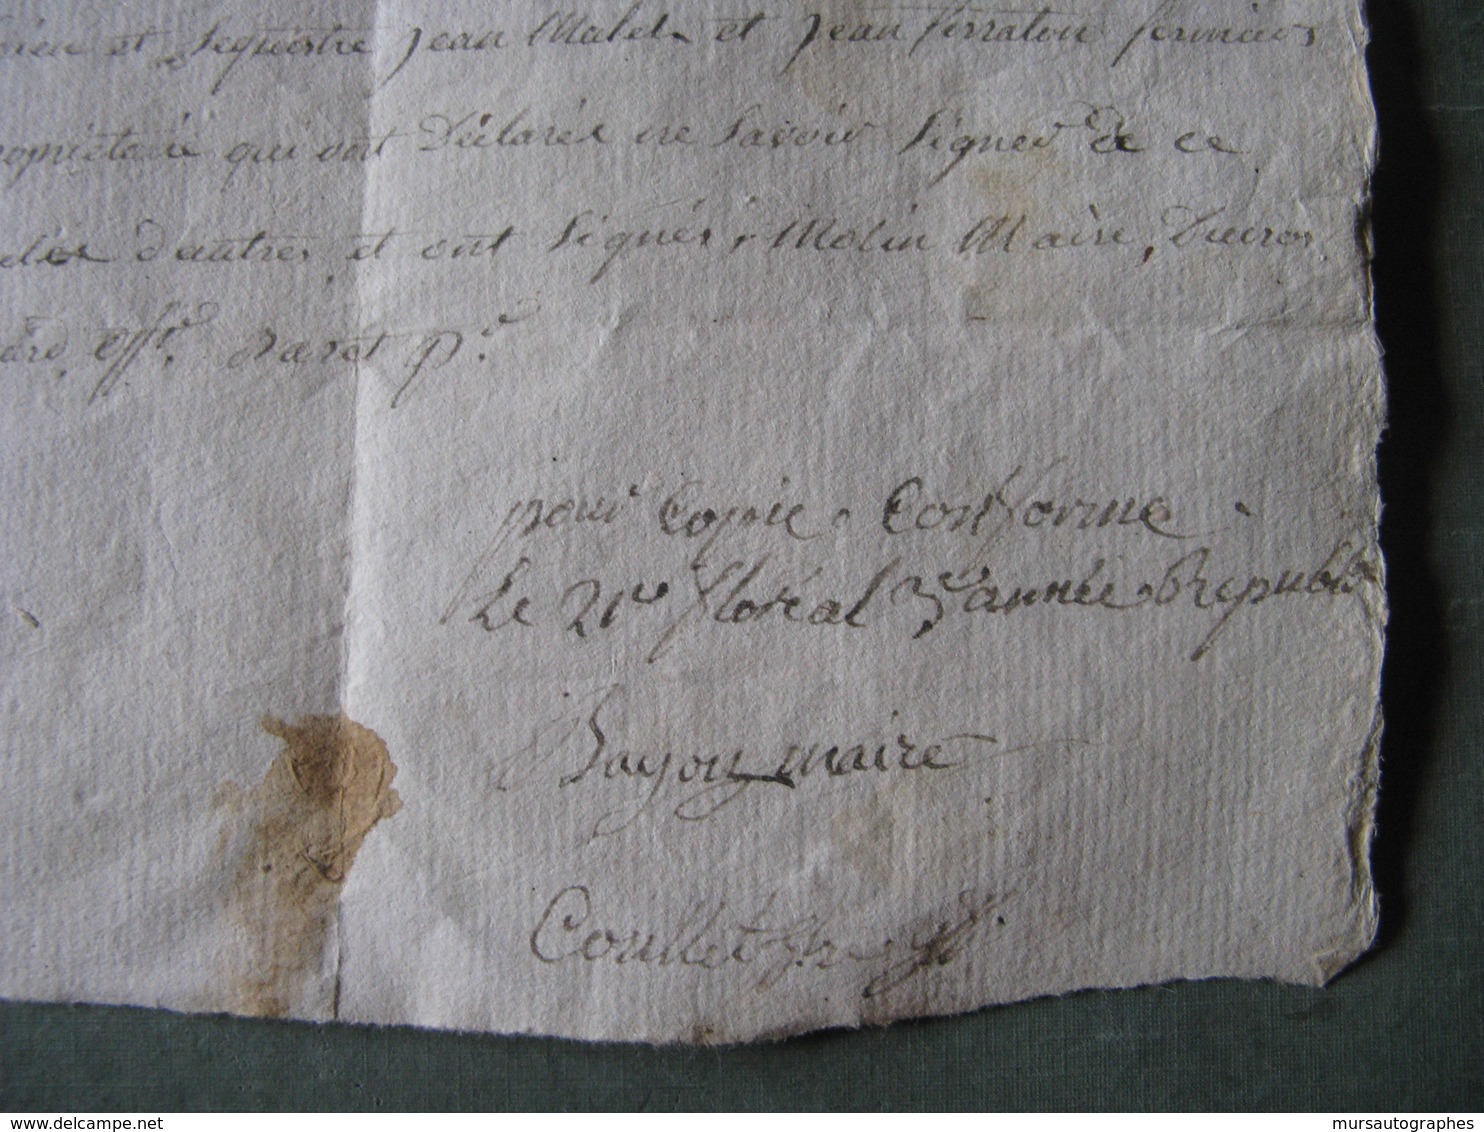 et sequestre jean Malet et jean ferratou fermiers
qui ont Déclarés ne Savoir Signer de ce
d'autres, et ont Signés, Molin Maire, Ducros
off.r p.r
pour Copie Conforme
Le 21e floréal 3e année Republic
Bayou maire
Coullet
delcampe.net
mursautographes